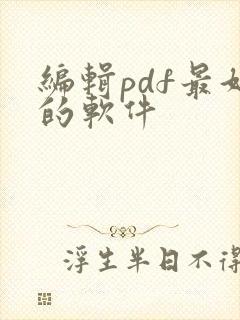 編輯pdf最好
的軟件
浮生半日不得